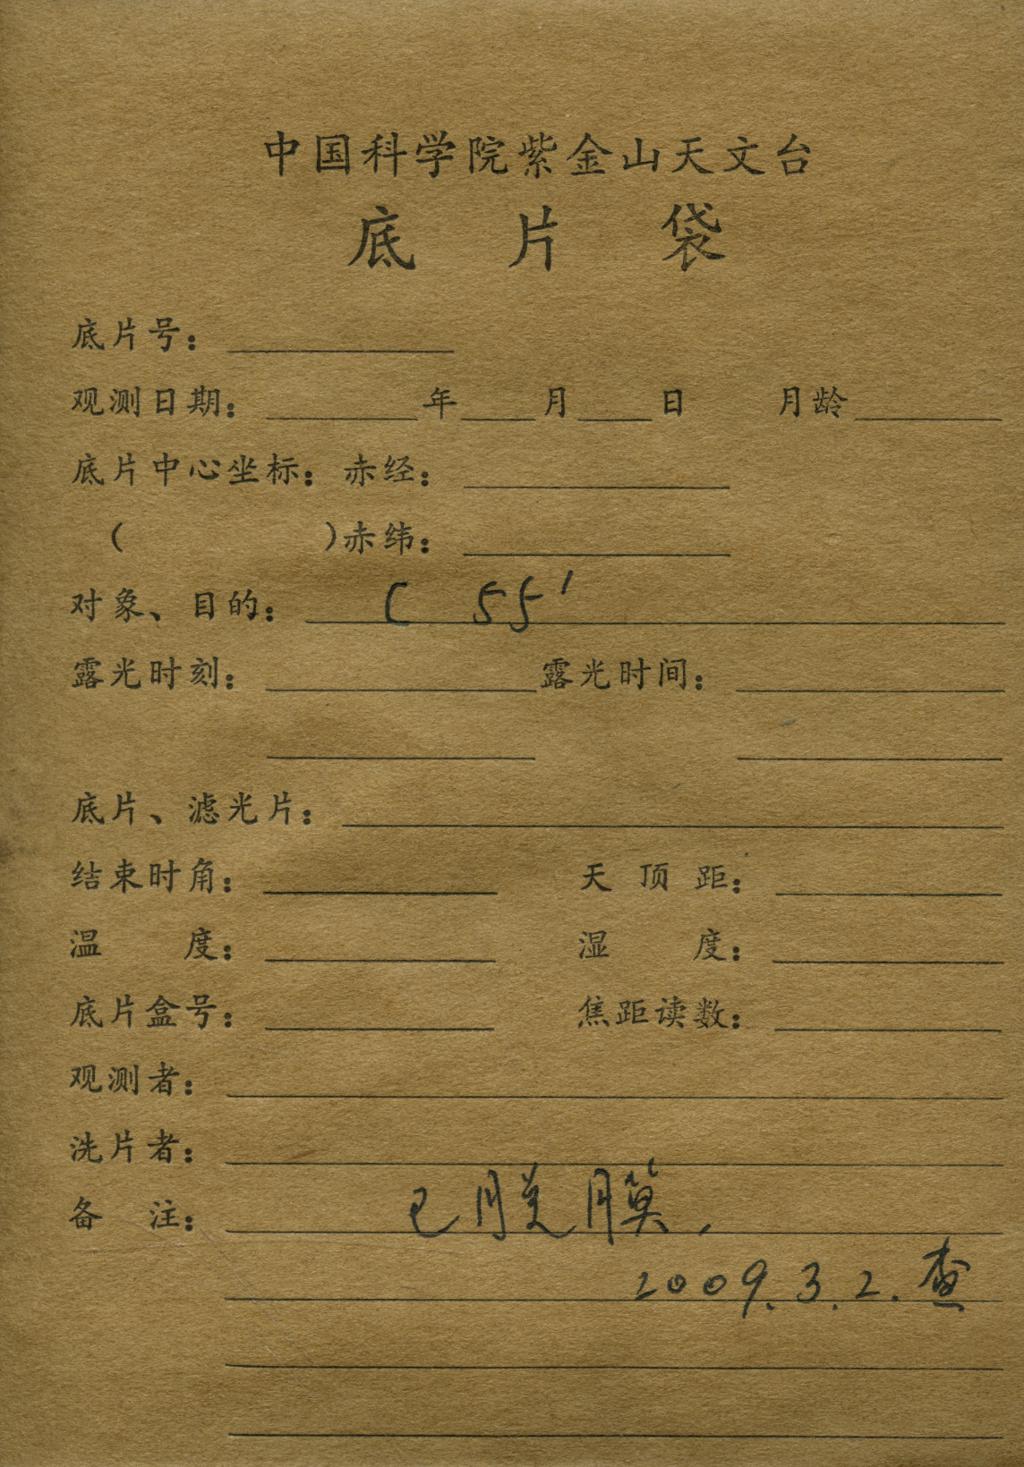 中国科学院紫金山天文台
底片袋
底片号：
观测日期： 年 月 日 月龄
底片中心坐标：赤经：
（ ）赤纬：
对象、目的： C 55'
露光时刻： 露光时间：
底片、滤光片：
结束时角： 天顶距：
温度： 湿度：
底片盒号： 焦距读数：
观测者：
洗片者：
备注： 已脱膜，
2009.3.2.查